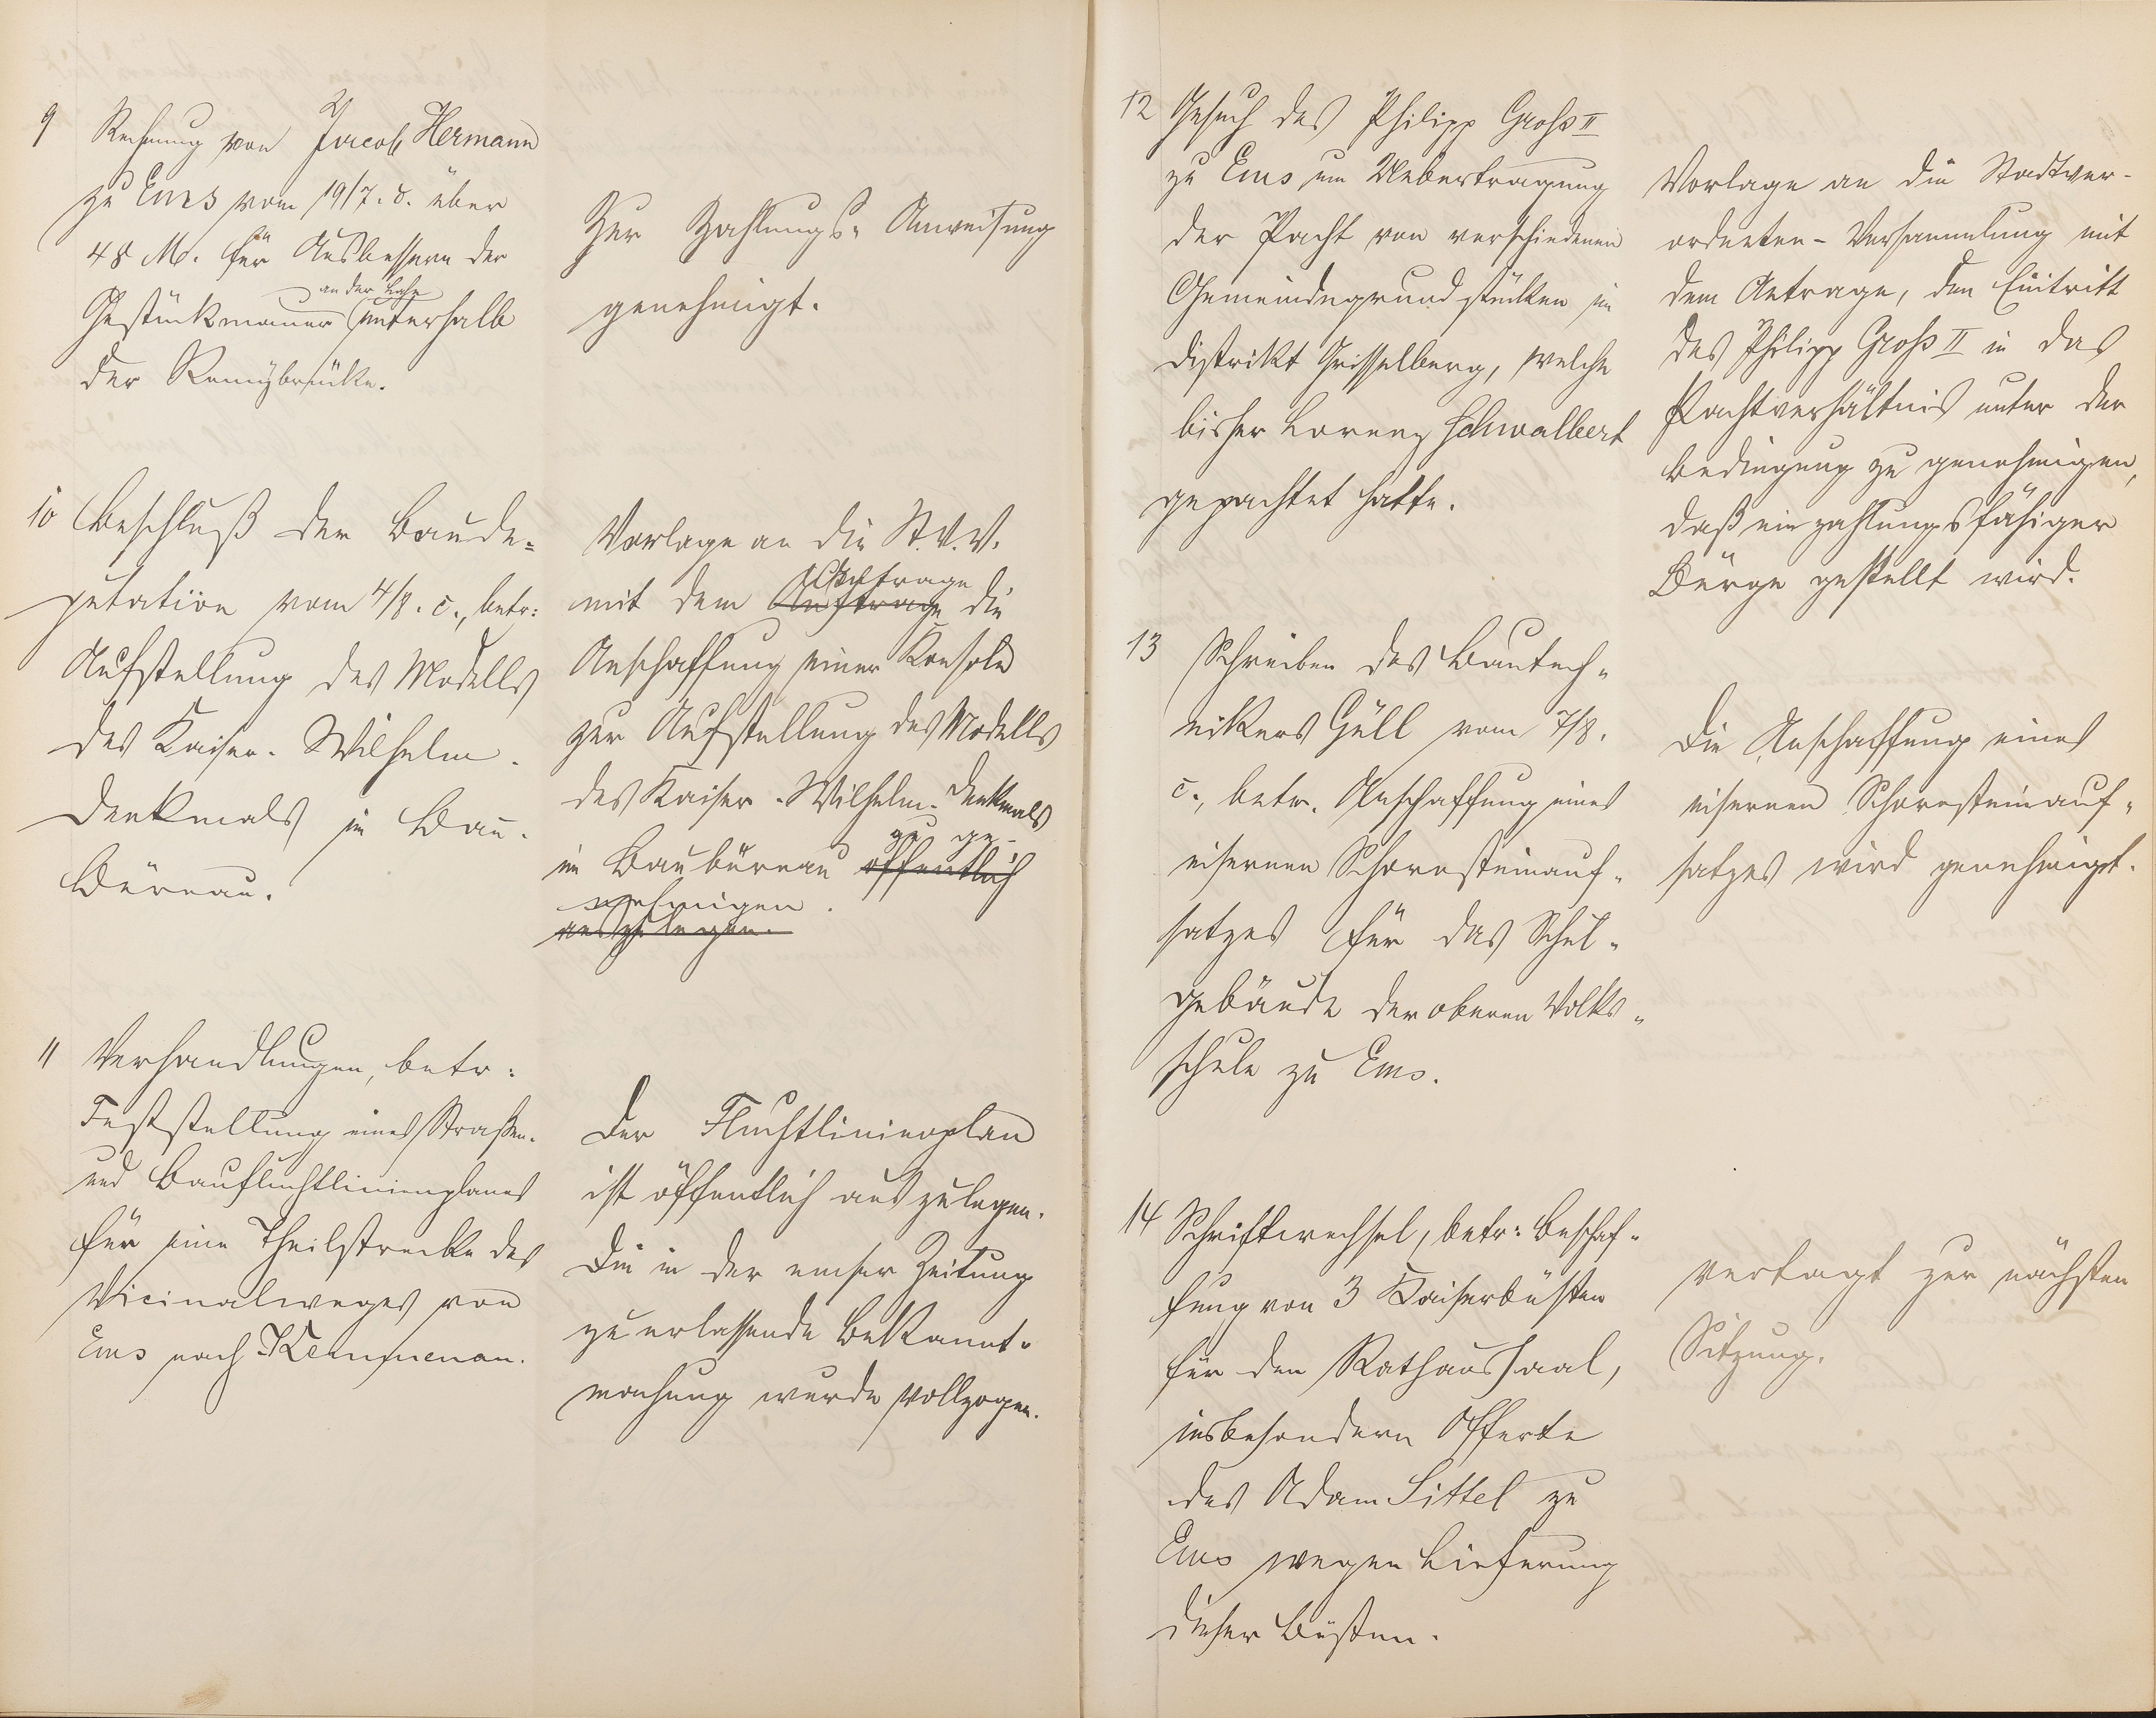 9 Rechnung von Jacob Hermann
zu Ems vom 19/7. d. über
48 M. für Ausbessern der
an der Lahn
Gestückmauer unterhalb
der Remybrücke.
Zur Zahlungs-Anweisung
genehmigt.
10 Beschluß der Baude-
putation vom 4/8. c., betr:
Aufstellung des Modells
des Kaiser-Wilhelm-
Denkmals im Bau-
Büreau.
Vorlage an die St.V.V.
mit dem Auftrage die
Anschaffung einer Konsole
zur Aufstellung des Modells
des Kaiser-Wilhelm-Denkmals
zu ge-
im Baubüreau öffentlich
nehmigen.
auszulegen.
11 Verhandlungen, betr:
Feststellung eines Straßen-
und Baufluchtlinienplanes
für eine Theilstrecke des
Vicinalweges von
Ems nach Kemmenau.
Der Fluchtlinienplan
ist öffentlich auszulegen.
Die in der Emser Zeitung
zu erlassende Bekannt-
machung wurde vollzogen.
12 Gesuch des Philipp Groß II
zu Ems um Uebertragung
der Pacht von verschiedenen
Gemeindegrundstücken im
Distrikt Grisselberg, welche
bisher Lorenz Schwalbert
gepachtet hatte.
Vorlage an die Stadtver-
ordneten-Versammlung mit
dem Antrage, den Eintritt
des Philipp Groß II in das
Pachtverhältnis unter der
Bedingung zu genehmigen,
daß ein zahlungsfähiger
Bürge gestellt wird.
13 Schreiben des Bautech-
nikers Güll vom 7/8.
c., betr. Anschaffung eines
eisernen Schornsteinauf-
satzes für das Schul-
gebäude der oberen Volks-
schule zu Ems.
Die Anschaffung eines
eisernen Schornsteinauf-
satzes wird genehmigt.
14 Schriftwechsel, betr: Beschaf-
fung von 3 Kaiserbüsten
für den Rathaussaal,
insbesondere Offerte
des Adam Sittel zu
Ems wegen Lieferung
dieser Büsten.
vertagt zur nächsten
Sitzung.